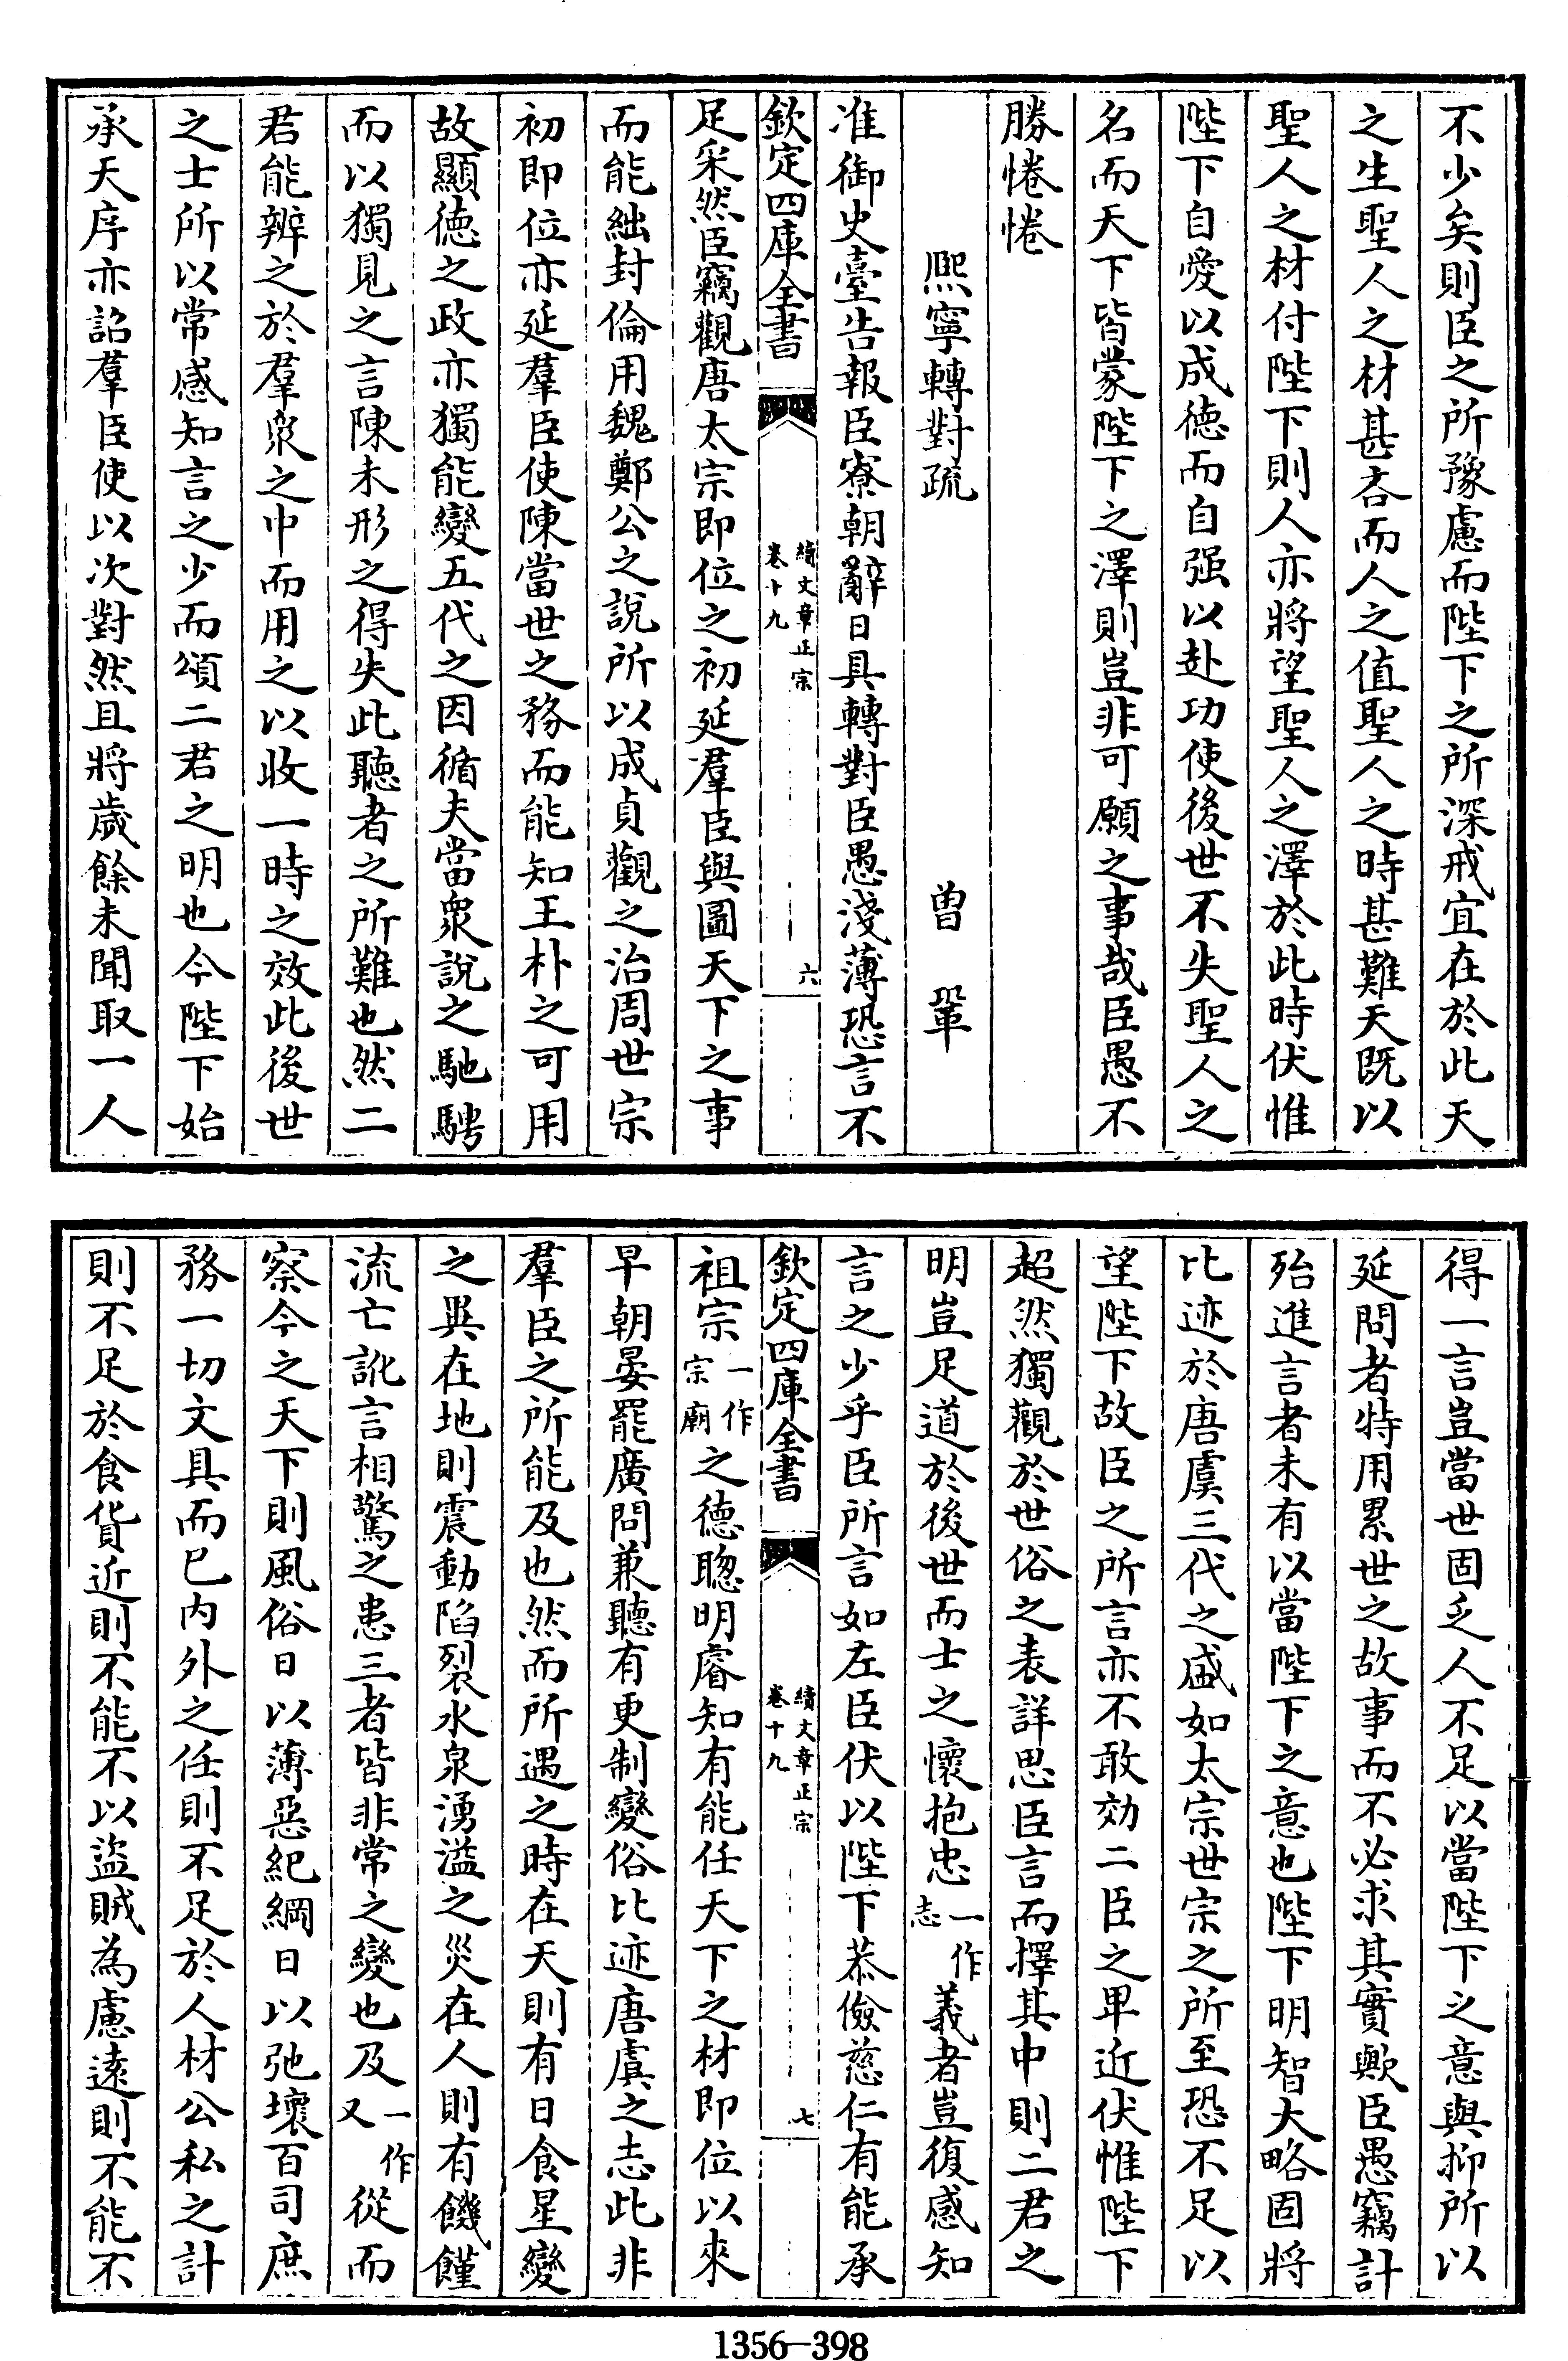 不少矣則臣之所豫慮而陛下之所深戒宜在於此天
之生聖人之材甚吝而人之值聖人之時甚難天既以
聖人之材付陛下則人亦將望聖人之澤於此時伏惟
陛下自愛以成徳而自强以赴功使後世不失聖人之
名而天下皆蒙陛下之澤則豈非可願之事哉臣愚不
勝惓惓
熙寧轉對疏 曾鞏
准御史臺告報臣寮朝辭日具轉對臣愚淺薄恐言不
欽定四庫全書
續文章正宗
卷十九
六
足采然臣竊觀唐太宗即位之初延羣臣與圖天下之事
而能絀封倫用魏鄭公之說所以成貞觀之治周世宗
初即位亦延羣臣使陳當世之務而能知王朴之可用
故顯徳之政亦獨能變五代之因循夫當衆說之馳騁
而以獨見之言陳未形之得失此聽者之所難也然二
君能辨之於羣衆之中而用之以收一時之效此後世
之士所以常感知言之少而頌二君之明也今陛下始
承天序亦詔羣臣使以次對然且將歲餘未聞取一人
得一言豈當世固乏人不足以當陛下之意與抑所以
延問者特用累世之故事而不必求其實歟臣愚竊計
殆進言者未有以當陛下之意也陛下明智大略固將
比迹於唐虞三代之盛如太宗世宗之所至恐不足以
望陛下故臣之所言亦不敢効二臣之卑近伏惟陛下
超然獨觀於世俗之表詳思臣言而擇其中則二君之
明豈足道於後世而士之懷抱忠一作志義者豈復感知
言之少乎臣所言如左臣伏以陛下恭儉慈仁有能承
欽定四庫全書
續文章正宗
卷十九
七
祖宗一作宗廟之德聰明睿知有能任天下之材即位以來
早朝晏罷廣問兼聽有更制變俗比迹唐虞之志此非
羣臣之所能及也然而所遇之時在天則有日食星變
之異在地則震動陷裂水泉湧溢之災在人則有饑饉
流亡訛言相驚之患三者皆非常之變也及一作又從而
察今之天下則風俗日以薄惡紀綱日以弛壞百司庶
務一切文具而已内外之任則不足於人材公私之計
則不足於食貨近則不能不以盜賊為慮逺則不能不
1356—398